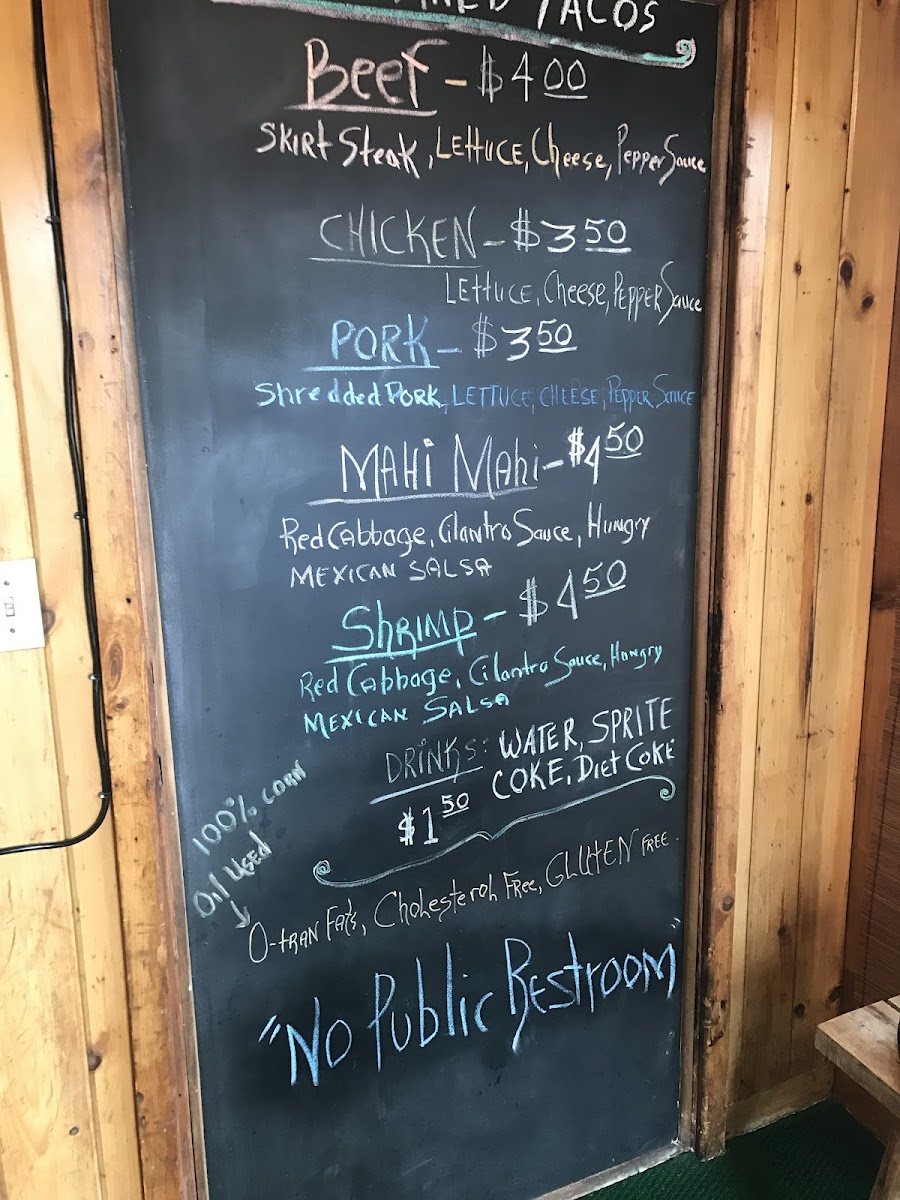 TACOS
Beef - $4.00
Skirt Steak, Lettuce, Cheese, Pepper Sauce
CHICKEN - $3.50
Lettuce, Cheese, Pepper Sauce
PORK - $3.50
Shredded PORK, LETTUCE, CHEESE, Pepper Sauce
MAHi MAHi - $4.50
Red Cabbage, Cilantro Sauce, Hungry
MEXICAN SALSA
Shrimp - $4.50
Red Cabbage, Cilantro Sauce, Hungry
MEXICAN SALSA
DRINKS: WATER, SPRITE
COKE, Diet Coke
$1.50
100% CORN
Oil Used
0-TRAN Fats, Cholesterol Free, GLUTEN FREE.
"No Public Restroom"